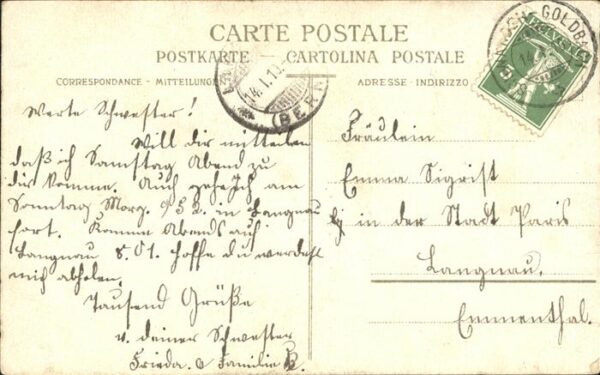 CARTE POSTALE
POSTKARTE — CARTOLINA POSTALE
CORRESPONDANCE - MITTEILUNG
ADRESSE - INDIRIZZO
GOLDB
HELVETIA
14.I.10
(BERN)
Werte Schwester!
Will dir mitteilen
daß ich Samstag Abend zu
dir komme. Auch gehe ich am
Sonntag Morg. 9 52. in Langnau
fort. Komme Abends auf
Langnau 8.01. hoffe du werdest
mich abholen.
Tausend Grüße
v. deiner Schwester
Frieda. & Familie
Fräulein
Emma Sigrist
bj in der Stadt Paris
Langnau.
Emmenthal.